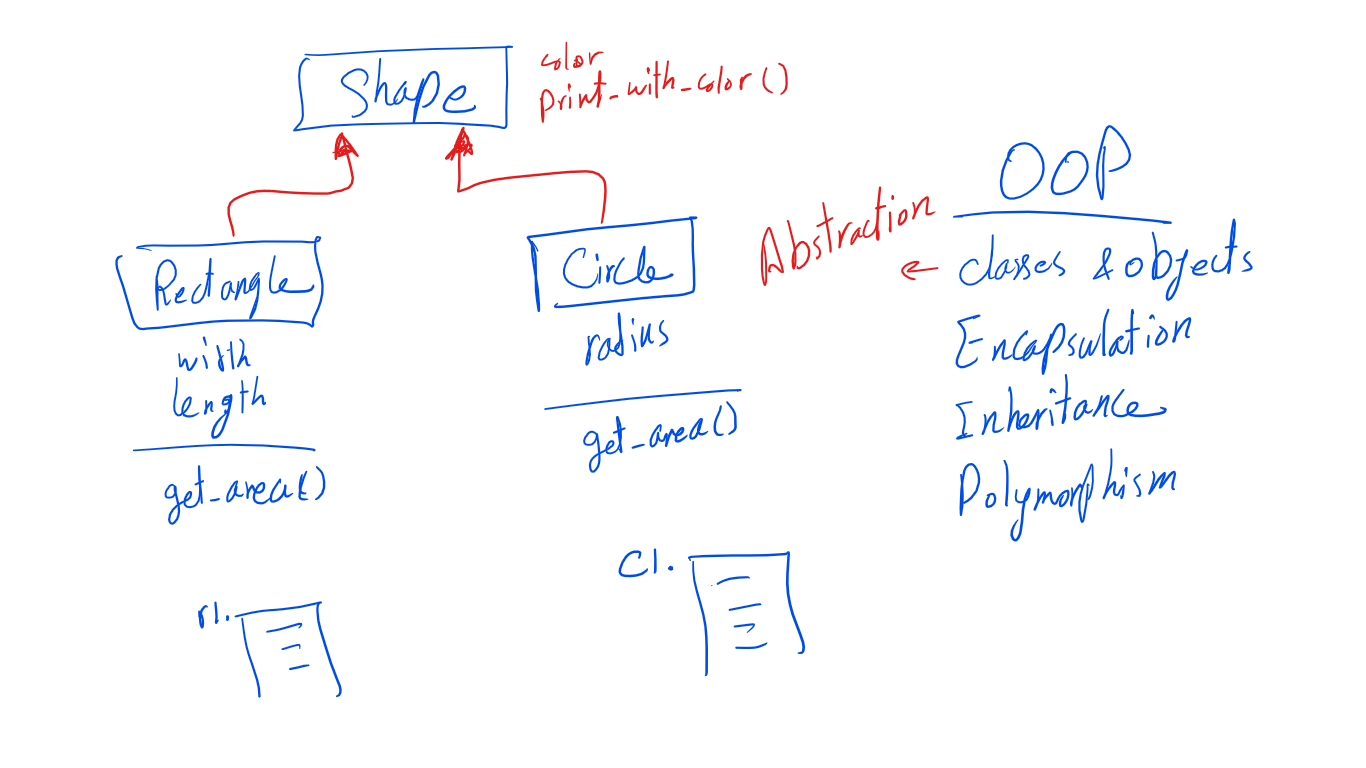 Shape
color
print_with_color()
Rectangle
width
length
get_area()
Circle
radius
get_area()
OOP
Abstraction
← classes & objects
Encapsulation
Inheritance
Polymorphism
r1.
C1.